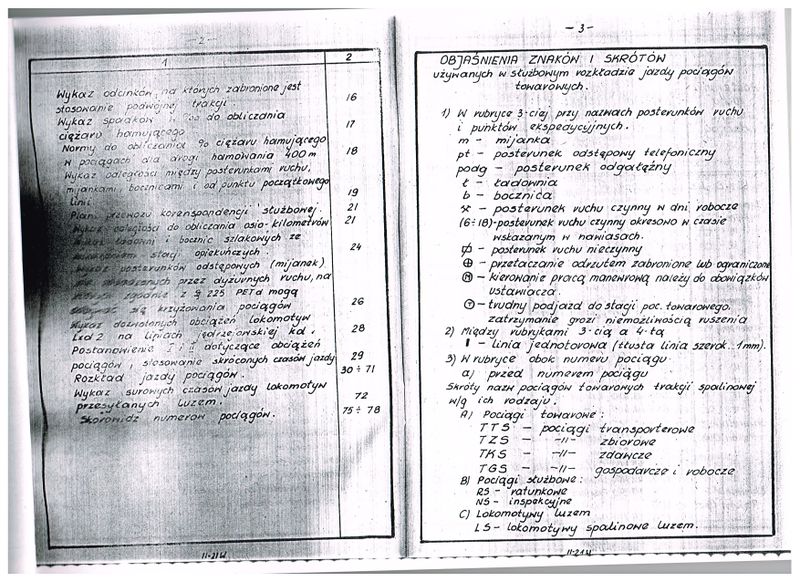 - 2 -
1 2
Wykaz odcinków, na których zabronione jest
stosowanie podwójnej trakcji 16
Wykaz spadków i do obliczania
ciężaru hamującego 17
Normy do obliczania % ciężaru hamującego
w pociągach dla drogi hamowania 400 m 18
Wykaz odległości między posterunkami ruchu,
mijankami, bocznicami i od punktu początkowego
linii 19
Plan przewozu korenspondencji służbowej. 21
Wykaz odległości do obliczania osio-kilometrów 21
Wykaz ładowni i bocznic szlakowych ze
stacji opiekuńczych. 24
Wykaz posterunków odstępowych (mijanek)
nie obsadzonych przez dyżurnych ruchu, na
których zgodnie z § 225 PETd mogą
się krzyżowania pociągów 26
Wykaz dozwolonych obciążeń lokomotyw
Lxd2 na liniach jędrzejowskiej kd. 28
Postanowienie dotyczące obciążeń
pociągów i stosowanie skróconych czasów jazdy 29
Rozkład jazdy pociągów. 30 ÷ 71
Wykaz surowych czasów jazdy lokomotyw
przesyłanych luzem. 72
Skorowidz numerów pociągów. 75 ÷ 78
- 3 -
OBJAŚNIENIA ZNAKÓW I SKRÓTÓW
używanych w służbowym rozkładzie jazdy pociągów
towarowych.
1) W rubryce 3-ciej przy nazwach posterunków ruchu
i punktów ekspedycyjnych.
m - mijanka
pt - posterunek odstępowy telefoniczny
podg - posterunek odgałęźny
ł - ładownia
b - bocznica
⚒ - posterunek ruchu czynny w dni robocze
(6÷18)- posterunek ruchu czynny okresowo w czasie
wskazanym w nawiasach.
- posterunek ruchu nieczynny
⊕ - przetaczanie odrzutem zabronione lub ograniczone
Ⓜ - kierowanie pracą manewrową należy do obowiązków
ustawiacza.
- trudny podjazd do stacji poc. towarowego,
zatrzymanie grozi niemożliwością ruszenia
2) Między rubrykami 3-cią a 4-tą
▮ - linia jednotorowa (tłusta linia szerok. 1mm).
3) W rubryce obok numeru pociągu
a) przed numerem pociągu
Skróty nazw pociągów towarowych trakcji spalinowej
w/g ich rodzaju.
A) Pociągi towarowe:
TTS - pociągi transporterowe
TZS - -//- zbiorowe
TKS - -//- zdawcze
TGS - -//- gospodarcze i robocze
B) Pociągi służbowe:
RS - ratunkowe
NS - inspekcyjne
C) Lokomotywy luzem
LS - lokomotywy spalinowe luzem.
II-21U II-21U